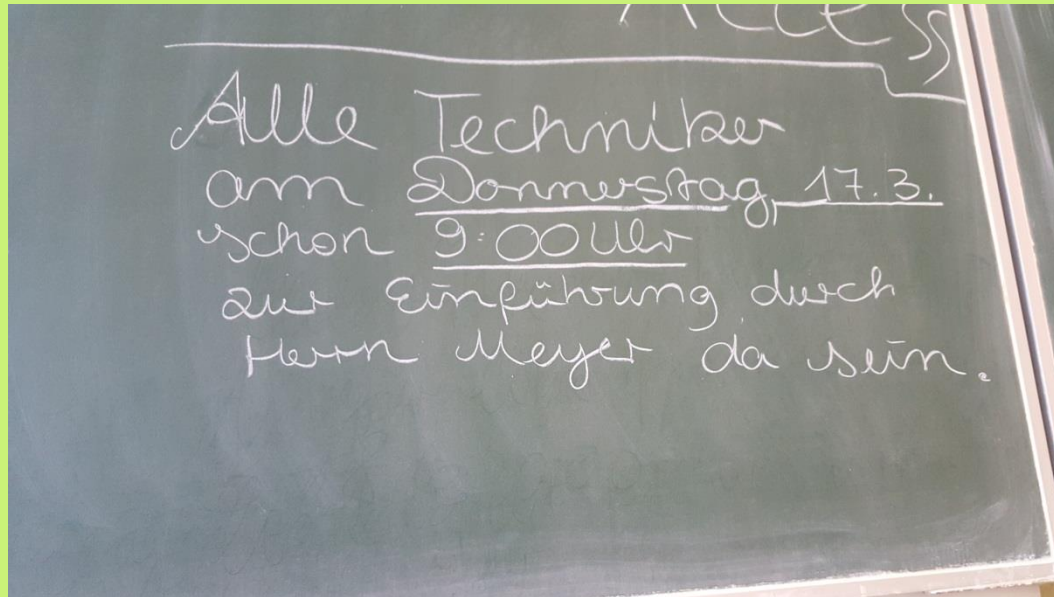 Access
Alle Techniker
am Donnerstag, 17.3.
schon 9:00 Uhr
zur Einführung durch
Herrn Meyer da sein.